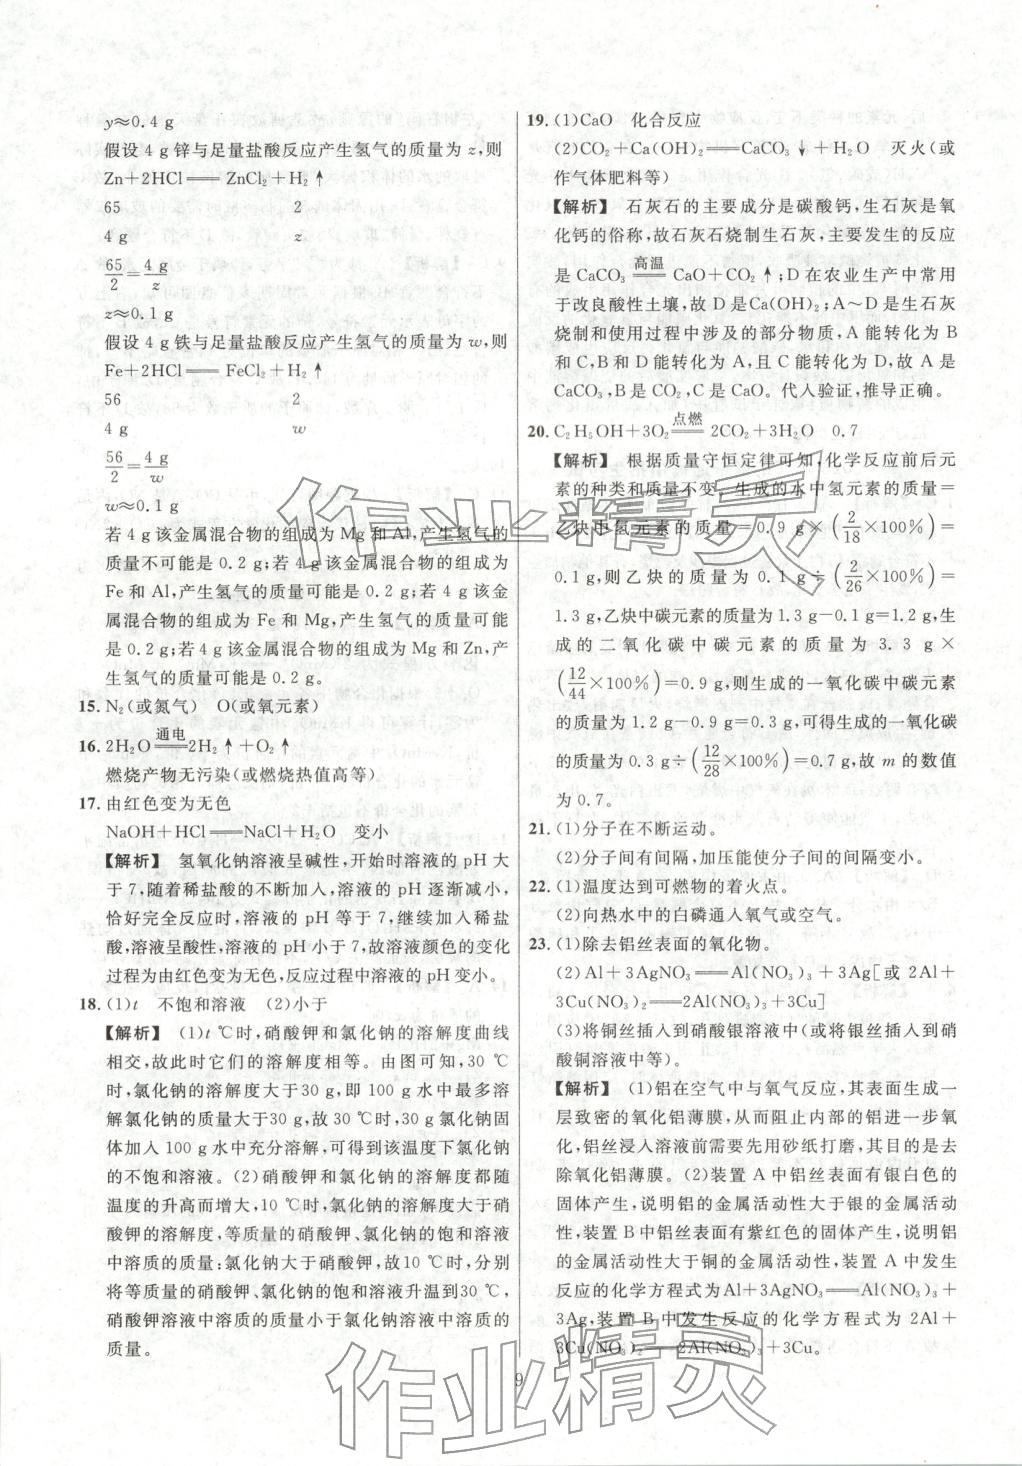 y≈0.4 g
假设 4 g 锌与足量盐酸反应产生氢气的质量为 z,则
Zn+2HCl══ZnCl₂+H₂↑
65 2
4 g z
65/2=4 g/z
z≈0.1 g
假设 4 g 铁与足量盐酸反应产生氢气的质量为 w,则
Fe+2HCl══FeCl₂+H₂↑
56 2
4 g w
56/2=4 g/w
w≈0.1 g
若 4 g 该金属混合物的组成为 Mg 和 Al,产生氢气的
质量不可能是 0.2 g;若 4 g 该金属混合物的组成为
Fe 和 Al,产生氢气的质量可能是 0.2 g;若 4 g 该金
属混合物的组成为 Fe 和 Mg,产生氢气的质量可能
是 0.2 g;若 4 g 该金属混合物的组成为 Mg 和 Zn,产
生氢气的质量可能是 0.2 g。
15. N₂(或氮气) O(或氧元素)
16. 2H₂O 通电══ 2H₂↑+O₂↑
燃烧产物无污染(或燃烧热值高等)
17. 由红色变为无色
NaOH+HCl══NaCl+H₂O 变小
【解析】 氢氧化钠溶液呈碱性,开始时溶液的 pH 大
于 7,随着稀盐酸的不断加入,溶液的 pH 逐渐减小,
恰好完全反应时,溶液的 pH 等于 7,继续加入稀盐
酸,溶液呈酸性,溶液的 pH 小于 7,故溶液颜色的变化
过程为由红色变为无色,反应过程中溶液的 pH 变小。
18. (1)t 不饱和溶液 (2)小于
【解析】 (1)t ℃时,硝酸钾和氯化钠的溶解度曲线
相交,故此时它们的溶解度相等。由图可知,30 ℃
时,氯化钠的溶解度大于 30 g,即 100 g 水中最多溶
解氯化钠的质量大于 30 g,故 30 ℃时,30 g 氯化钠固
体加入 100 g 水中充分溶解,可得到该温度下氯化钠
的不饱和溶液。(2)硝酸钾和氯化钠的溶解度都随
温度的升高而增大,10 ℃时,氯化钠的溶解度大于硝
酸钾的溶解度,等质量的硝酸钾、氯化钠的饱和溶液
中溶质的质量:氯化钠大于硝酸钾,故10 ℃时,分别
将等质量的硝酸钾、氯化钠的饱和溶液升温到30 ℃,
硝酸钾溶液中溶质的质量小于氯化钠溶液中溶质的
质量。
19. (1)CaO 化合反应
(2)CO₂+Ca(OH)₂══CaCO₃↓+H₂O 灭火(或
作气体肥料等)
【解析】 石灰石的主要成分是碳酸钙,生石灰是氧
化钙的俗称,故石灰石烧制生石灰,主要发生的反应
是 CaCO₃ 高温══ CaO+CO₂↑;D 在农业生产中常用
于改良酸性土壤,故 D 是 Ca(OH)₂;A~D 是生石灰
烧制和使用过程中涉及的部分物质,A 能转化为 B
和 C,B 和 D 能转化为 A,且 C 能转化为 D,故 A 是
CaCO₃,B 是 CO₂,C 是 CaO。代入验证,推导正确。
20. C₂H₅OH+3O₂ 点燃══ 2CO₂+3H₂O 0.7
【解析】 根据质量守恒定律可知,化学反应前后元
素的种类和质量不变,生成的水中氢元素的质量=
乙炔中氢元素的质量=0.9 g×(2/18×100%)=
0.1 g,则乙炔的质量为 0.1 g÷(2/26×100%)=
1.3 g,乙炔中碳元素的质量为 1.3 g-0.1 g=1.2 g,生
成的二氧化碳中碳元素的质量为 3.3 g×
(12/44×100%)=0.9 g,则生成的一氧化碳中碳元素
的质量为 1.2 g-0.9 g=0.3 g,可得生成的一氧化碳
的质量为 0.3 g÷(12/28×100%)=0.7 g,故 m 的数值
为 0.7。
21. (1)分子在不断运动。
(2)分子间有间隔,加压能使分子间的间隔变小。
22. (1)温度达到可燃物的着火点。
(2)向热水中的白磷通入氧气或空气。
23. (1)除去铝丝表面的氧化物。
(2)Al+3AgNO₃══Al(NO₃)₃+3Ag[或 2Al+
3Cu(NO₃)₂══2Al(NO₃)₃+3Cu]
(3)将铜丝插入到硝酸银溶液中(或将银丝插入到硝
酸铜溶液中等)。
【解析】 (1)铝在空气中与氧气反应,其表面生成一
层致密的氧化铝薄膜,从而阻止内部的铝进一步氧
化,铝丝浸入溶液前需要先用砂纸打磨,其目的是去
除氧化铝薄膜。(2)装置 A 中铝丝表面有银白色的
固体产生,说明铝的金属活动性大于银的金属活动
性,装置 B 中铝丝表面有紫红色的固体产生,说明铝
的金属活动性大于铜的金属活动性,装置 A 中发生
反应的化学方程式为 Al+3AgNO₃══Al(NO₃)₃+
3Ag,装置 B 中发生反应的化学方程式为 2Al+
3Cu(NO₃)₂══2Al(NO₃)₃+3Cu。
9
作业精灵
作业精灵